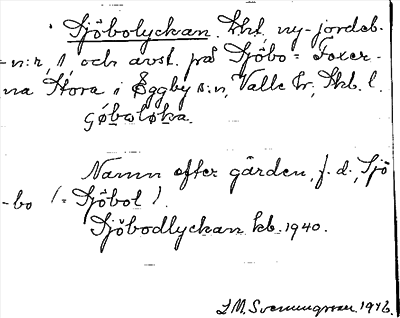 Sjöbolyckan. Lht. ny-jordeb.
-n:r 1 och avst. på Sjöbo = Foxer-
na Stora i Eggby s:n, Valle hr, Skb. l.
Namn efter gården, f. d., Sjö
-bo (= Sjöbol).
Sjöbodlyckan kb. 1940.
L M. Svenungsson 1946.